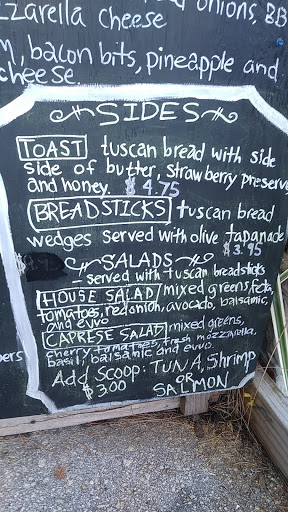 zzarella cheese
onions, BB
M, bacon bits, pineapple and
cheese
SIDES
TOAST tuscan bread with side
side of butter, strawberry preserve
and honey. $4.75
BREADSTICKS tuscan bread
wedges served with olive tapanade
$3.95
SALADS
- served with tuscan breadsticks
HOUSE SALAD mixed greens, feta,
tomatoes, red onion, avocado, balsamic,
and evvo
CAPRESE SALAD mixed greens,
cherry tomatoes, fresh mozzarella,
basil, balsamic and evvo.
Add Scoop: TUNA, Shrimp
OR
$3.00 SALMON
pers